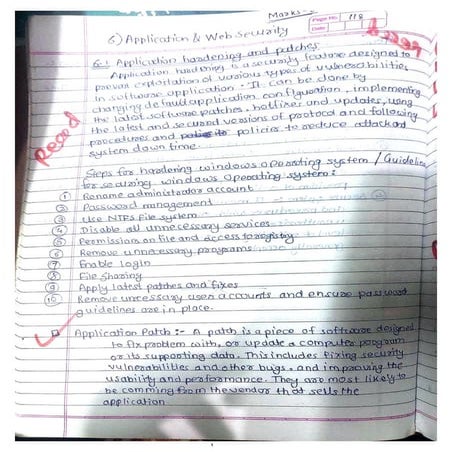 Marks-
Page No. 118
Date
6) Application & Web security
6.1 Application hardening and patches:
Application hardening is a security feature designed to
prevan exploitation of various types of vulnerabilities
in software application. It can be done by
changing default application configuration, implementing
the latest software patches, hotfixes and updates, using
the latest and secured versions of protocol and following
procedures and policies to reduce attack and
system down time.
Read
Steps for hardening windows operating system / Guideline
for securing windows operating system:
① Rename administrator account
② Password management
③ Use NTFS File system
④ Disable all unnecessary services
⑤ Permission on file and access to registry
⑥ Remove unnecessary programs
⑦ Enable login
⑧ File Sharing
⑨ Apply latest patches and fixes
⑩ Remove unnecessary user accounts and ensure password
guidelines are in place.
Application Patch :- A patch is a piece of software designed
to fix problem with, or update a computer program
or its supporting data. This includes fixing security
vulnerabilities and other bugs, and improving the
usability and performance. They are most likely to
be comming from the vendor that sells the
application